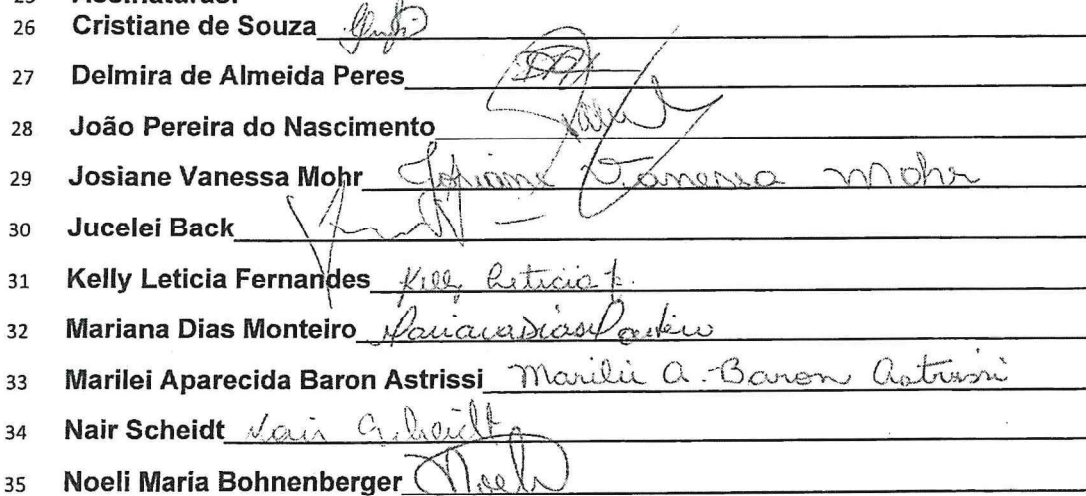 25 Assinaturas:
26 Cristiane de Souza
27 Delmira de Almeida Peres
28 João Pereira do Nascimento
29 Josiane Vanessa Mohr Josiane Vanessa Mohr
30 Jucelei Back
31 Kelly Leticia Fernandes Kelly Leticia F.
32 Mariana Dias Monteiro Mariana Dias Monteiro
33 Marilei Aparecida Baron Astrissi Marilei A. Baron Astrissi
34 Nair Scheidt Nair Scheidt
35 Noeli Maria Bohnenberger Noeli